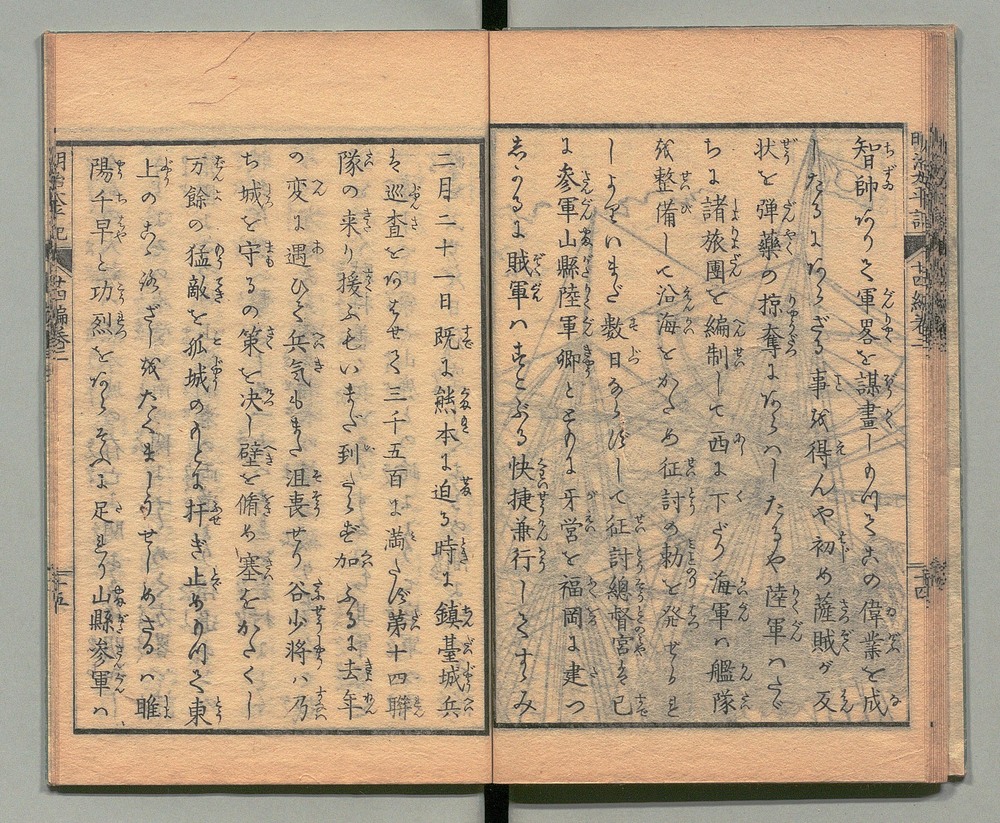 智師ありて軍畧を謀畫しもつてこの偉業を成
したるにあらざる事を得んや初め薩賊が反
状を弾藥の掠奪にあらハしたるや陸軍ハたゞ
ちに諸旅團を編制して西に下だり海軍ハ艦隊
を整備して沿海をかため征討の勅を発せられ
しよりいまだ数日ならずして征討總督宮を已
に参軍山縣陸軍卿とともに牙営を福岡に建つ
しかるに賊軍ハすこぶる快捷兼行してすゝみ
二月二十一日既に熊本に迫る時に鎮臺城兵
は巡査をあはせて三千五百に満たず第十四聯
隊の来り援ふもいまだ到らず加ふるに去年
の変に遇ひて兵気もまた沮喪せり谷少将ハ乃
ち城を守るの策を决し壁を脩め塞をかたくし
万餘の猛敵を孤城のもとに扞ぎ止めもつて東
上のこゝろざしをたくましうせしめざるハ睢
陽千早と功烈をあらそふに足れり山縣参軍ハ
明治太平記
十四編巻二
十四
十五